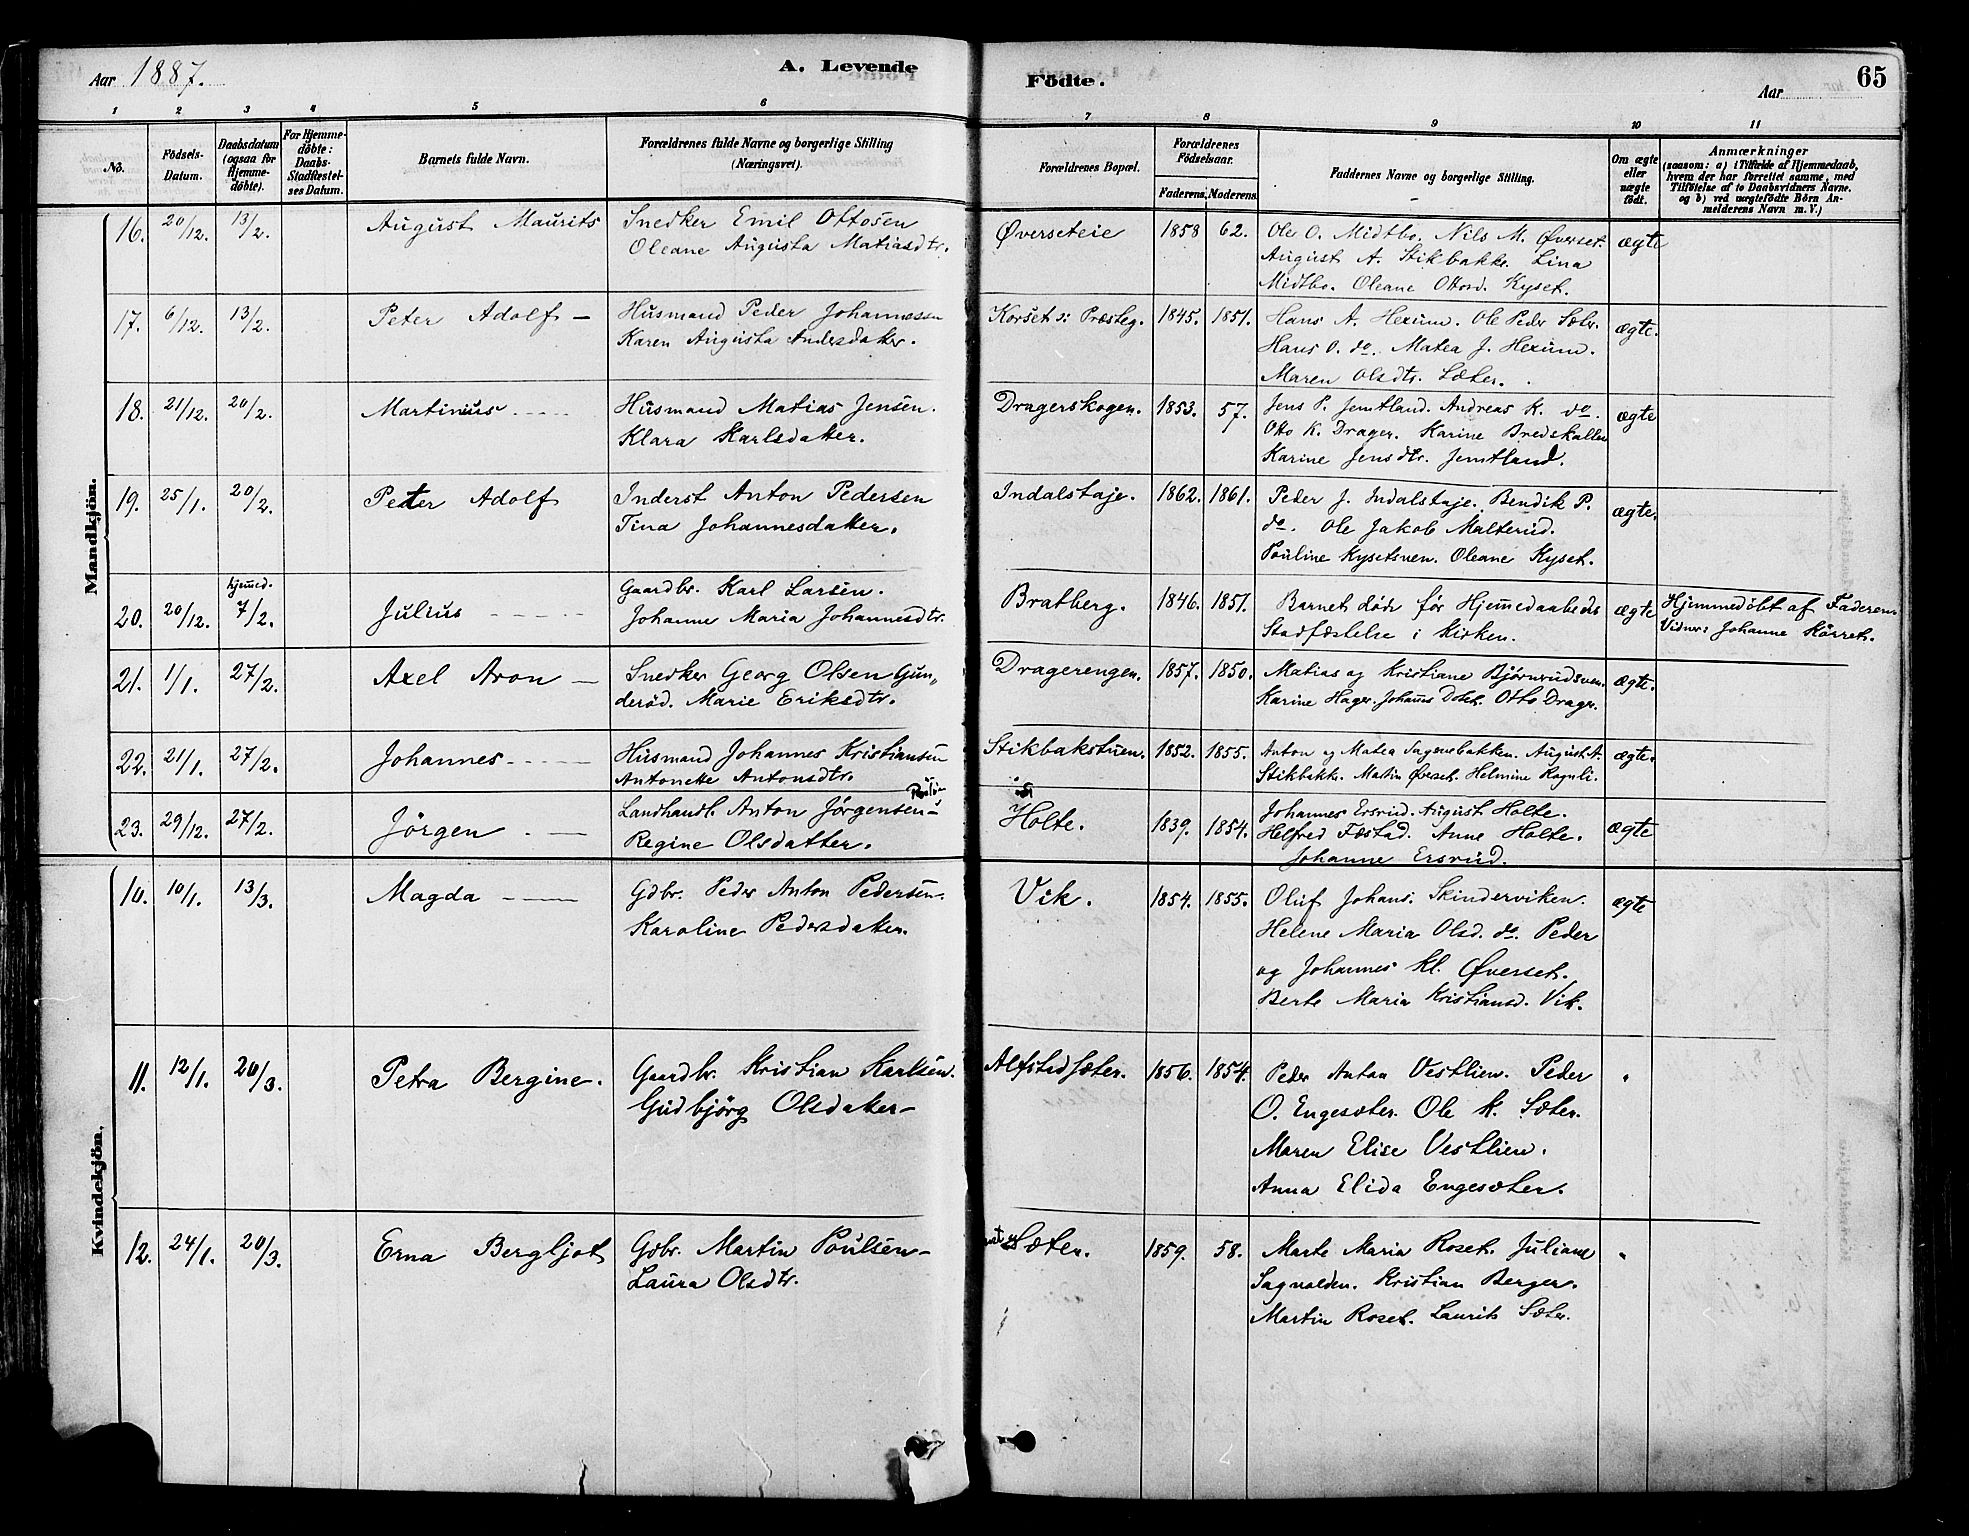 Aar 1887.
A. Levende
Fødte.
Aar
65
1 2 3 4 5 6 7 8 9 10 11
No.
Födsels-Datum.
Daabsdatum (ogsaa for Hjemme-døbte).
For Hjemme-døbte: Daabs-Stadfæstel-ses Datum.
Barnets fulde Navn.
Forældrenes fulde Navne og borgerlige Stilling (Næringsvei).
Forældrenes Bopæl.
Forældrenes Fødselsaar.
Faderens. Moderens.
Faddernes Navne og borgerlige Stilling.
Om ægte eller uægte født.
Anmærkninger
(saasom: a) i Tilfælde af Hjemmedaab, hvem der har forrettet samme, med Tilføielse af to Daabsvidners Navne. og b) ved uægtefødte Börn An-melderens Navn m. V.)
Mandkjön.
16. 20/12. 13/2. August Maurits Snedker Emil Ottosen Øverseteie 1858 62. Ole O. Midtbo. Nils M. Øverset. ægte
Oleane Augusta Matiasdtr. August A. Stikbakke. Lina
Midtbo. Oleane Ottosd. Kyset.
17. 6/12. 13/2. Peter Adolf – Husmand Peder Johannessen Korset i Præsteg. 1845. 1851. Hans A. Hexum. Ole Peder Sæter. ægte.
Karen Augusta Andersdatter. Hans O. do. Matea J. Hexum.
Maren Olsdtr. Sæter.
18. 21/12. 20/2. Martinius Husmand Matias Jensen. Dragerskogen. 1853. 57. Jens P. Jemtland. Andreas K. do. ægte
Klara Karlsdatter. Otto K. Drager. Karine Bredskallen
Karine Jensdtr. Jemtland.
19. 25/1. 20/2. Peter Adolf Inderst Anton Pedersen Indalstaje. 1862. 1861. Peder J. Indalstaje. Bendik P. ægte.
Tina Johannesdatter. do. Ole Jakob Malterud.
Pouline Kysetsven. Oleane Kyset.
20. 20/12. hjemmed. 7/2. Julius Gaardbr. Karl Larsen. Bratberg. 1846. 1851. Barnet døde før Hjemmedaabens ægte Hjemmedöbt af Faderen
Johanne Maria Johannesdtr. Stadfæstelse i Kirken. Vidner: Johanne Körret.
21. 1/1. 27/2. Axel Aron – Snedker Georg Olsen Gun„ Dragerengen. 1857. 1850. Matias og Kristiane Bjørnrudsven. ægte.
deröd. Marie Eriksdtr. Karine Hager. Otto Drager.
22. 21/1. 27/2. Johannes Husmand Johannes Kristiansen Stikbakstuen. 1852. 1855. Anton og Matea Sagensbakken. August A. ægte.
Antonette Antonsdtr. Stikbakke. Martin Øverset. Helmine Kognli.
23. 29/12. 27/2. Jörgen – Landhandl. Anton Jørgensen Holte. 1839. 1854. Johannes Ersrud. August Holte. ægte
Regine Olsdatter. Helfred Fæstad. Anne Holte.
Johanne Ersrud.
Kvindekjön.
10. 10/1. 13/3. Magda Gdbr. Peder Anton Pedersen. Vik. 1854. 1855. Oluf Johans. Skinderviken. ægte
Karoline Pedersdatter. Helene Maria Olsd. do. Peder
og Johannes Kl. Øverset.
Berte Maria Kristiansd. Vik.
11. 12/1. 20/3. Petra Bergine. Gaardbr. Kristian Karlsen. Alfstadsæter. 1856. 1854. Peder Anton Vestlien. Peder "
Gudbjörg Olsdatter – O. Engesæter. Ole K. Sæter.
Maren Elise Vestlien.
Anna Elida Engesæter.
12. 24/1. 20/3. Erna Bergljot Gdbr. Martin Poulsen – Sæter. 1859. 58. Marte Maria Roset. Juliane "
Laura Olsdtr. Sagvolden. Kristian Berger.
Martin Roset. Laurits Sæter.